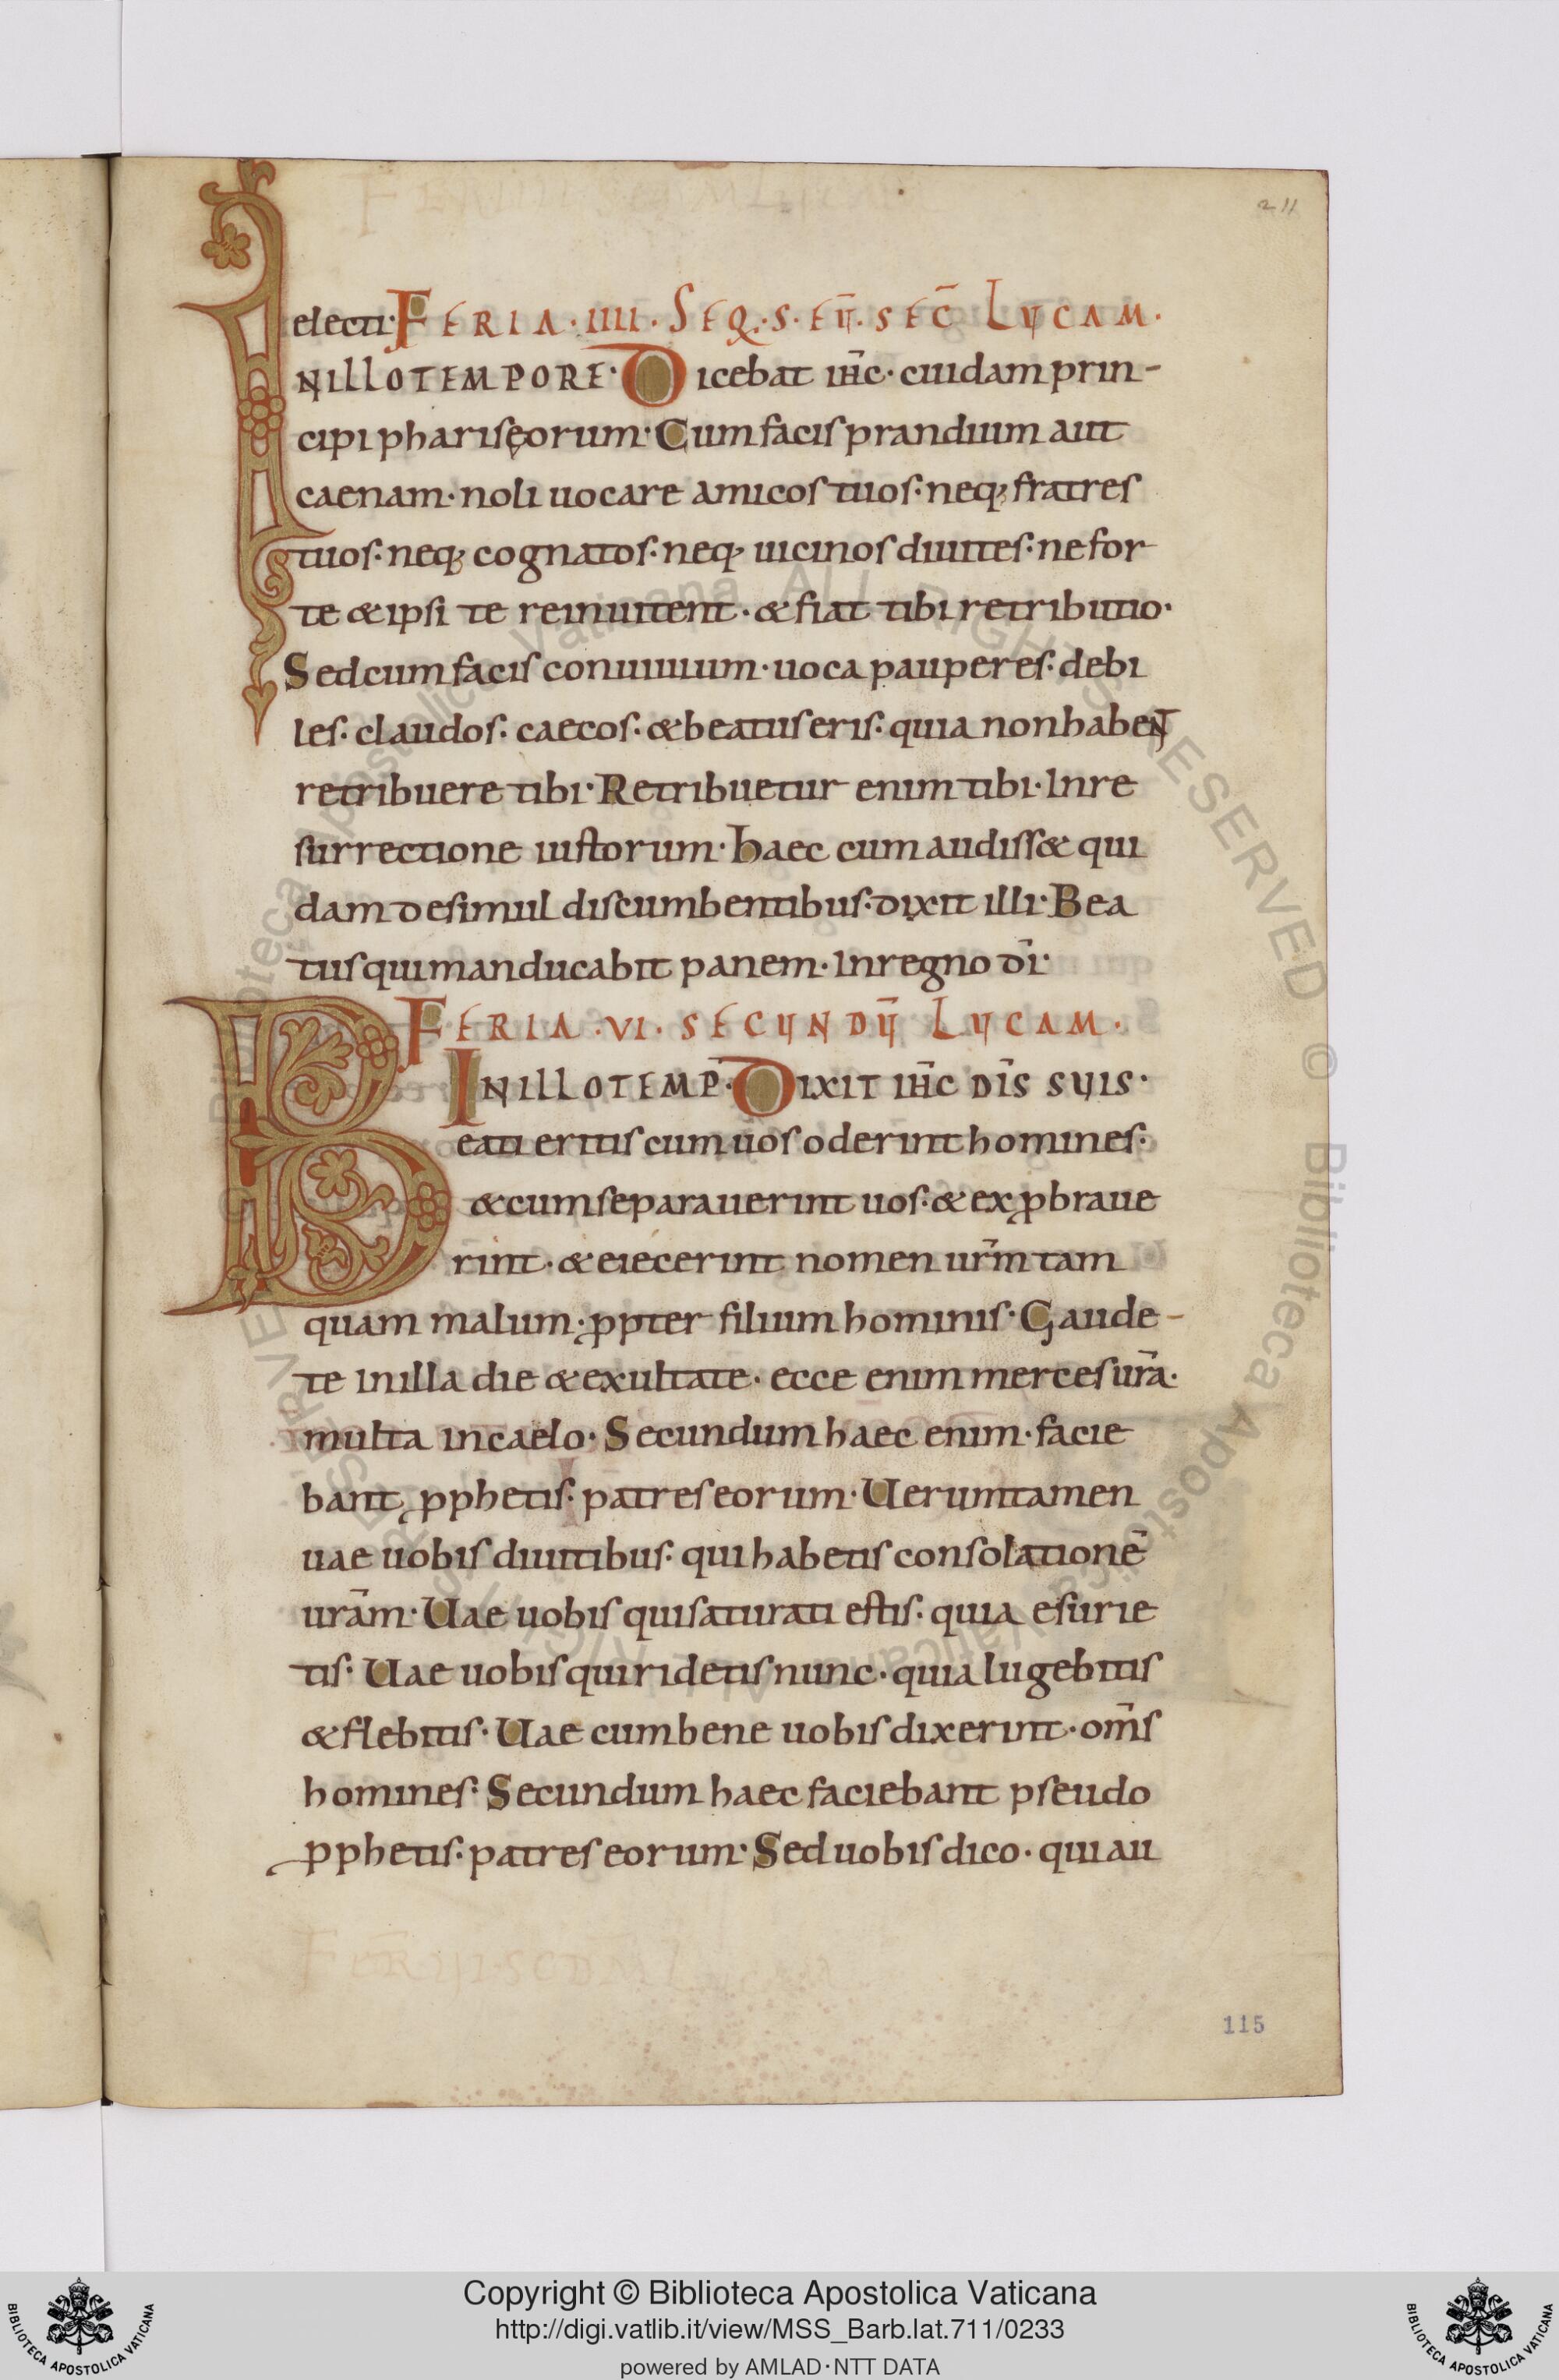 211
electi· FERIA·IIII· SEQ·S·EŪ· SEC̄ LUCAM·
INILLOTEMPORE· Dicebat ih̄c· cuidam prin-
cipi pharisęorum· Cum facis prandium aut
caenam· noli uocare amicos tuos· neq; fratres
tuos· neq; cognatos· neq; uicinos diuites· ne for
te & ipsi te reinuitent· & fiat tibi retributio·
Sed cum facis conuiuium· uoca pauperes· debi
les· claudos· caecos· & beatus eris· quia non habent
retribuere tibi· Retribuetur enim tibi· In re
surrectione iustorum· Haec cum audiss& qui
dam de simul discumbentibus· dixit illi· Bea
tus qui manducabit panem· In regno dī·
FERIA·VI· SECUNDŪ LUCAM·
INILLOTEMP̄· DIXIT IH̄C DĪS SUIS·
Beati eritis cum uos oderint homines·
& cum separauerint uos· & exꝓbraue
rint· & eiecerint nomen ur̄m tam
quam malum· ꝓpter filium hominis· Gaude-
te in illa die & exultate· ecce enim merces ur̄a·
multa in caelo· Secundum haec enim· facie
bant ꝓphetis· patres eorum· Uerumtamen
uae uobis diuitibus· qui habetis consolationē
ur̄am· Uae uobis qui saturati estis· quia esurie
tis· Uae uobis qui ridetis nunc· quia lugebitis
& flebitis· Uae cum bene uobis dixerint· om̄s
homines· Secundum haec faciebant pseudo
ꝓphetis· patres eorum· Sed uobis dico· qui au
115
Copyright © Biblioteca Apostolica Vaticana
http://digi.vatlib.it/view/MSS_Barb.lat.711/0233
powered by AMLAD·NTT DATA
BIBLIOTECA APOSTOLICA VATICANA
BIBLIOTECA APOSTOLICA VATICANA